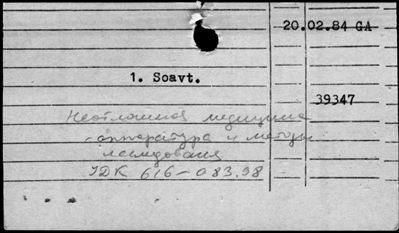 20.02.84 GA
1. Soavt.
39347
Неотложная медицина
аппаратура и методы
исследования
УДК 616-083.98